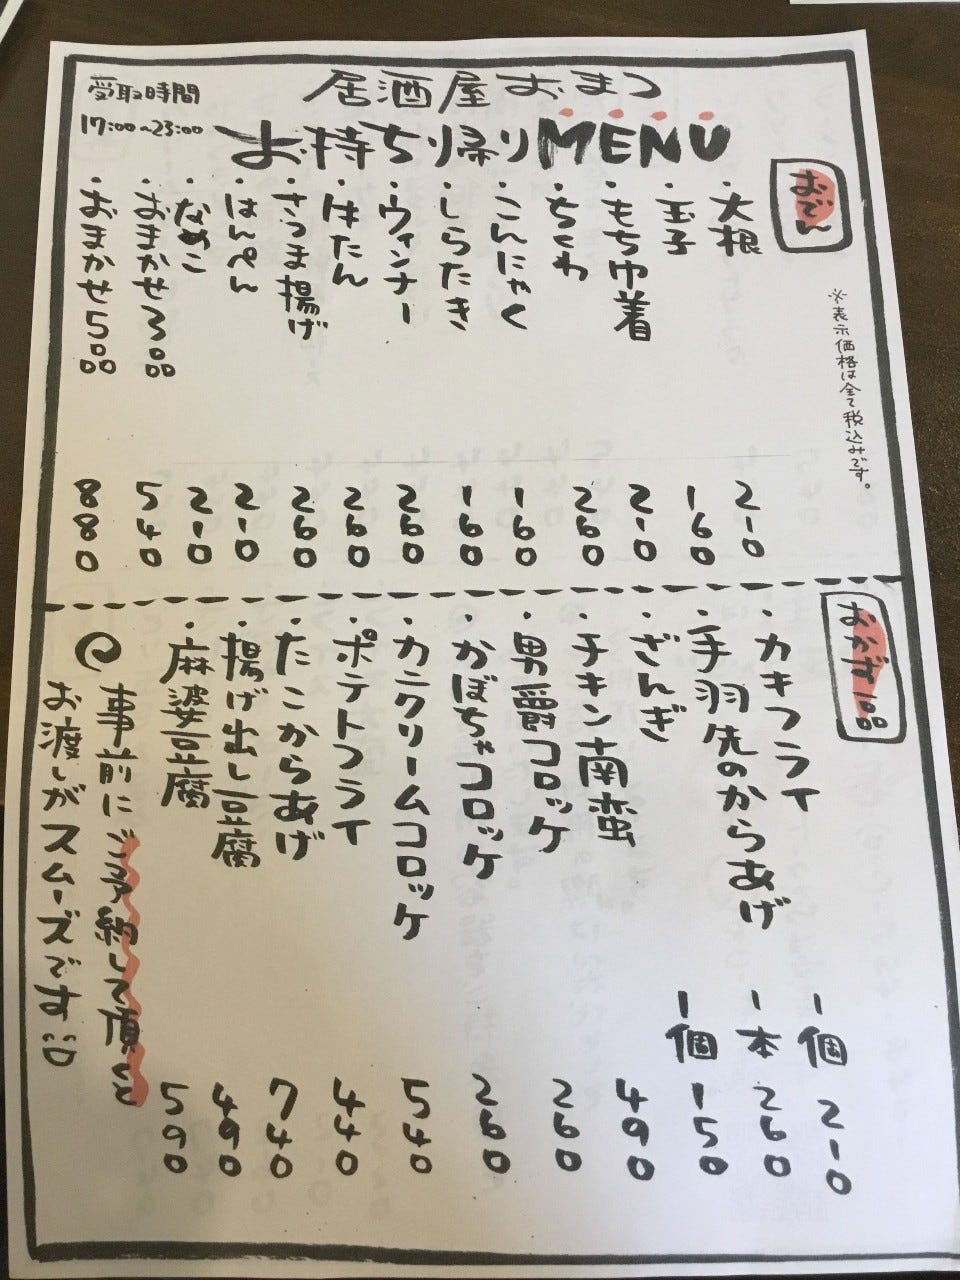 居酒屋おまつ
お持ち帰りMENU
受取時間
17:00~23:00
おでん
※表示価格は全て税込みです。
・大根 210
・玉子 160
・もち巾着 210
・ちくわ 260
・こんにゃく 160
・しらたき 160
・ウィンナー 260
・はたん 260
・さつま揚げ 260
・はんぺん 210
・なめこ 210
・おまかせ3品 540
・おまかせ5品 880
おかず一品
・カキフライ 1個 210
・手羽先のからあげ 1本 260
・ざんぎ 1個 150
・チキン南蛮 490
・男爵コロッケ 260
・かぼちゃコロッケ 260
・カニクリームコロッケ 540
・ポテトフライ 440
・たこからあげ 740
・揚げ出し豆腐 490
・麻婆豆腐 590
事前にご予約して頂くと
お渡しがスムーズです